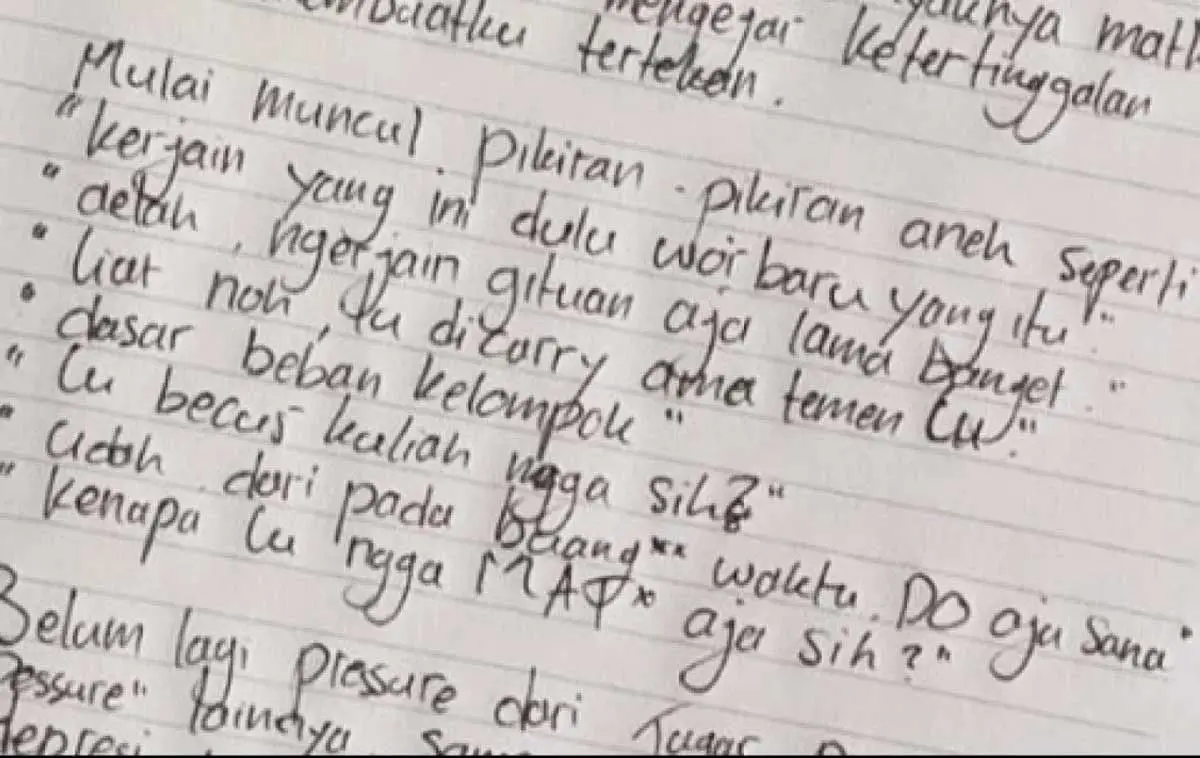 mengejar ketertinggalan
tertekan.
Mulai muncul pikiran-pikiran aneh seperti
"kerjain yang ini dulu woi baru yang itu".
"aelah, ngerjain gituan aja lama banget."
"liat noh, lu dicarry ama temen lu".
"dasar beban kelompok"
"lu becus kuliah ngga sih?"
"udah dari pada buang** waktu. DO aja sana"
"kenapa lu ngga MAP* aja sih?"
Belum lagi pressure dari Tugas
pessure" lainnya
depresi